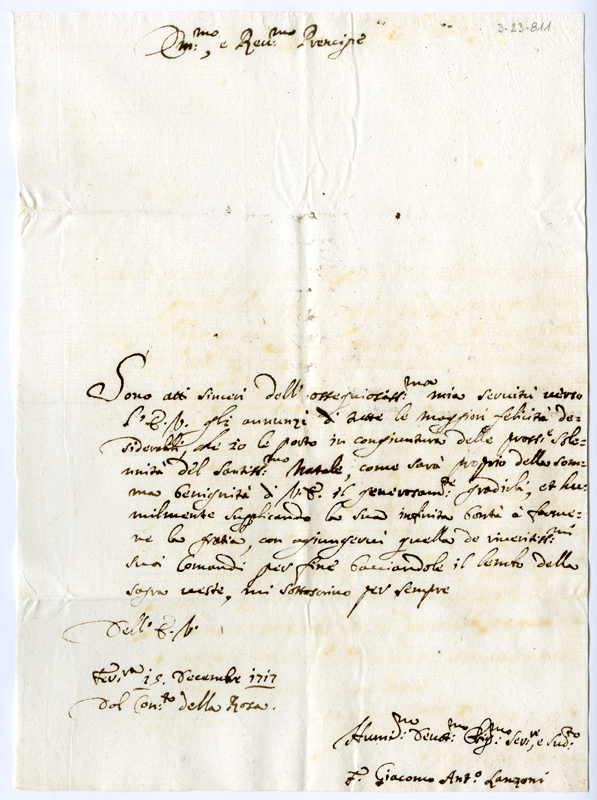 3-23-811
Em:mo, e Reu:mo Prencipe
Sono atti sinceri dell' ossequiosiss:ma mia seruitù uerso
l'E. V. gli annunzi di tutte le maggiori felicità de-
siderabili, che io le porto in congiuntura delle pross:e Sole-
nnità del Santiss:mo Natale, come sarà proprio della som-
ma benignità di V.E. il generosam:te gradirli, et hu-
milmente supplicando la sua infinita bontà à farme-
ne la gratia, con agiungerui quella de riueritiss:mi
suoi Comandi per fine bacciandole il lembo della
sagra ueste, mi sottoscriuo per sempre
Dell' E. V.
15. Decembre 1717
Dal Con:to della Rosa.
Humil:mo Deuot:mo Oblig:mo Seru:re, e Sud:to
F. Giacomo Ant:o Lanzoni